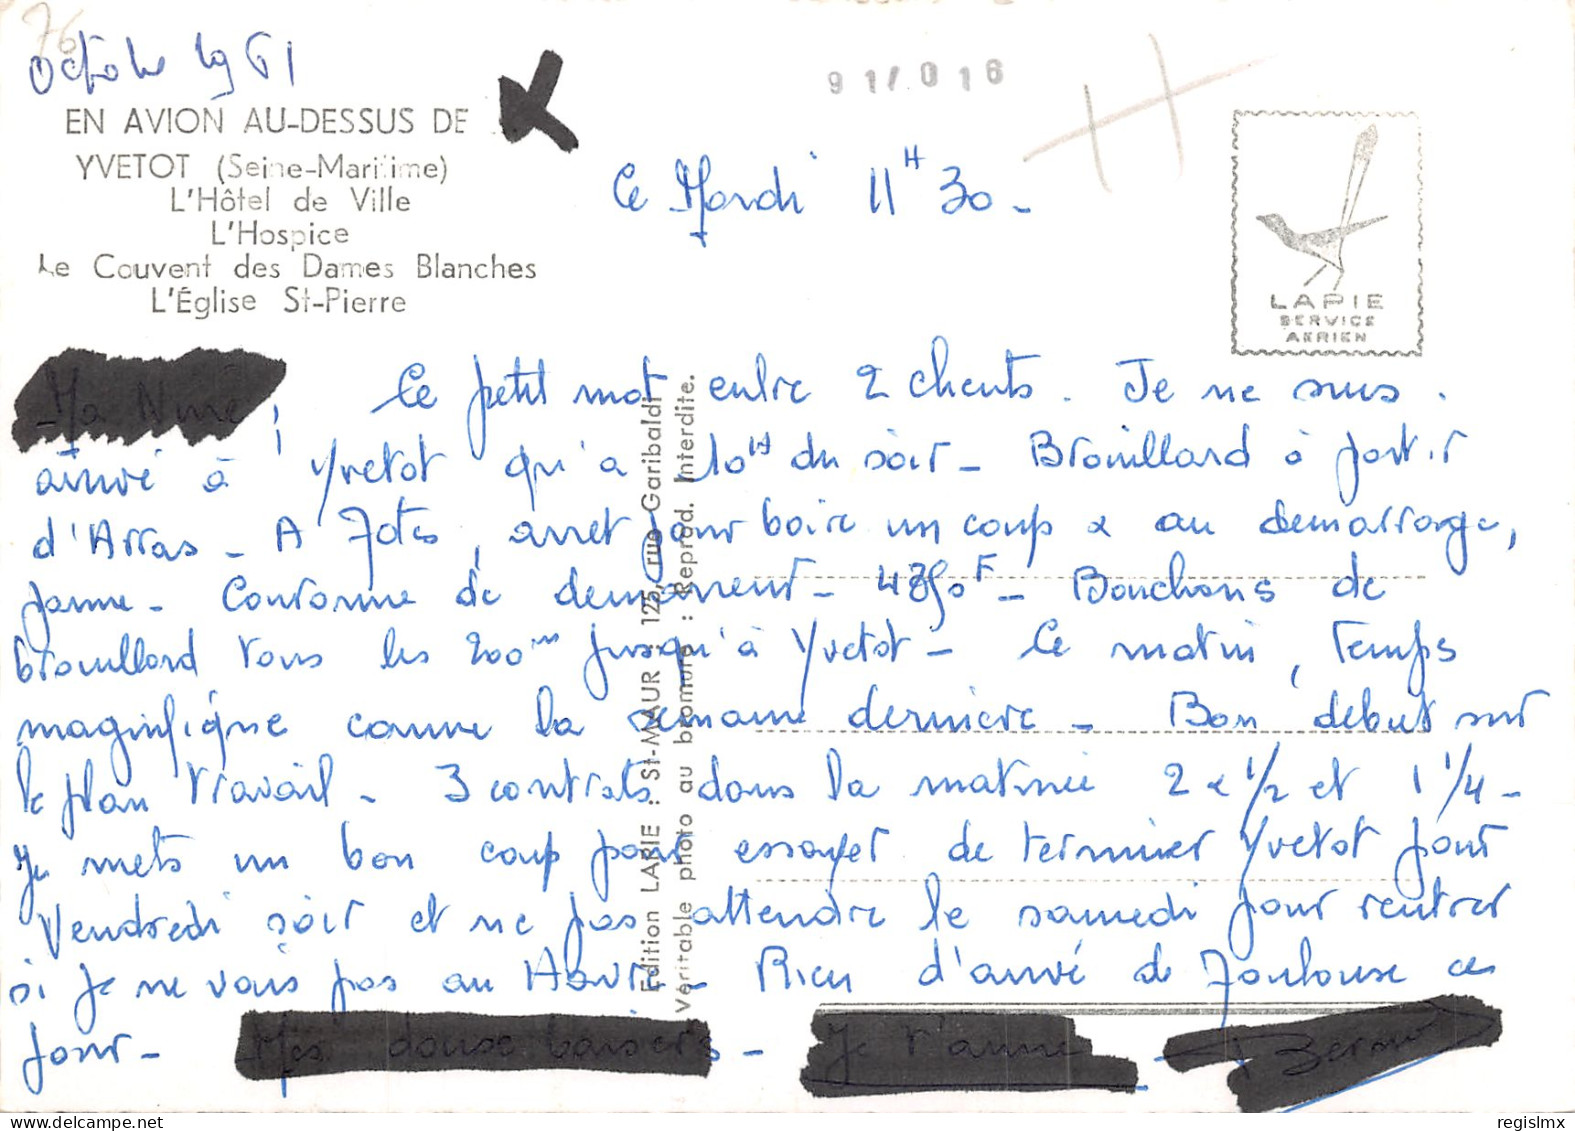 76
Octobre 1961
91/016
EN AVION AU-DESSUS DE
YVETOT (Seine-Maritime)
L'Hôtel de Ville
L'Hospice
Le Couvent des Dames Blanches
L'Église St-Pierre
Ce Mardi 11H30 -
LAPIE
SERVICE
AERIEN
Ce petit mot entre 2 clients. Je ne suis
arrivé à Yvetot qu'a 10H du soir - Brouillard à partir
d'Arras - A Totes, arret pour boire un coup & au demarrage,
panne - Couronne de demarreur - 4350F - Bouchons de
brouillard tous les 200m jusqu'à Yvetot - Ce matin, Temps
magnifique comme la semaine derniere - Bon debut sur
le plan travail - 3 contrats dans la matinée 2 & 1/2 et 1 1/4 -
Je mets un bon coup pour essayer de terminer Yvetot pour
Vendredi soir et ne pas attendre le samedi pour rentrer
si je ne vais pas au Havre - Rien d'arrivé de Toulouse ces
jour -
Mes douse baisers - Je t'aime -
Edition LAPIE : St-MAUR 125, rue Garibaldi
Véritable photo au bromure : Reprod. Interdite.
regislmx